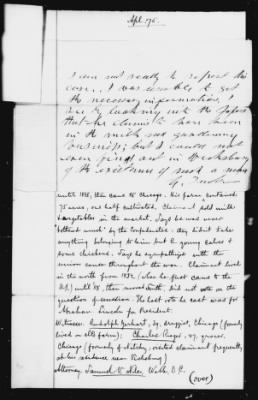 Apl. 176.
I am not ready to report this
case. I was unable to get
the necessary information,
in the milk and gardening
business; but I could not
even find out in Vicksburg
of the existence of such a man
until 1858, then came to Chicago. His farm contained
75 acres, one half cultivated. Claimant sold milk
& vegetables in the market. Says he was never
"bothered much" by the Confederates: they did not take
anything belonging to him but 2 young calves &
some chickens. Says he sympathised with the
union cause throughout the war. Claimant lived
in the north from 1852 (when he first came to the
U.S.) until '58, then moved South, did not vote on the
question of secession. The last vote he cast was for
Abraham Lincoln for President.
Witnesses: Rudolph, druggist, Chicago (formerly
lived on clts farm); Charles, 49, grocer,
Chicago (formerly of Natchez; visited claimant frequently,
at his residence near Vicksburg)
Attorney Samuel V. Niles, Wash. D.C.
(over)